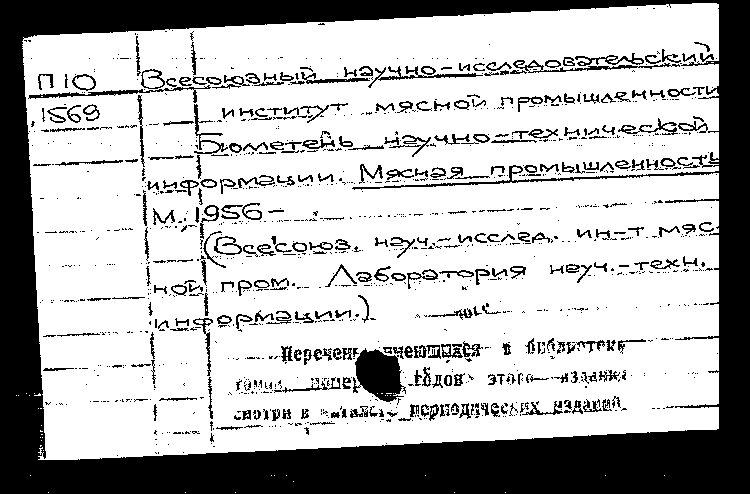 П10 Всесоюзный научно-исследовательский
1569 институт мясной промышленности
Бюллетень научно-технической
информации. Мясная промышленность
М., 1956-
(Всесоюз. науч.-исслед. ин-т мяс-
ной пром. Лаборатория науч.-техн.
информации.)
Перечень имеющихся в библиотеке
томов, номеров годов этого издания
смотри в каталоге периодических изданий